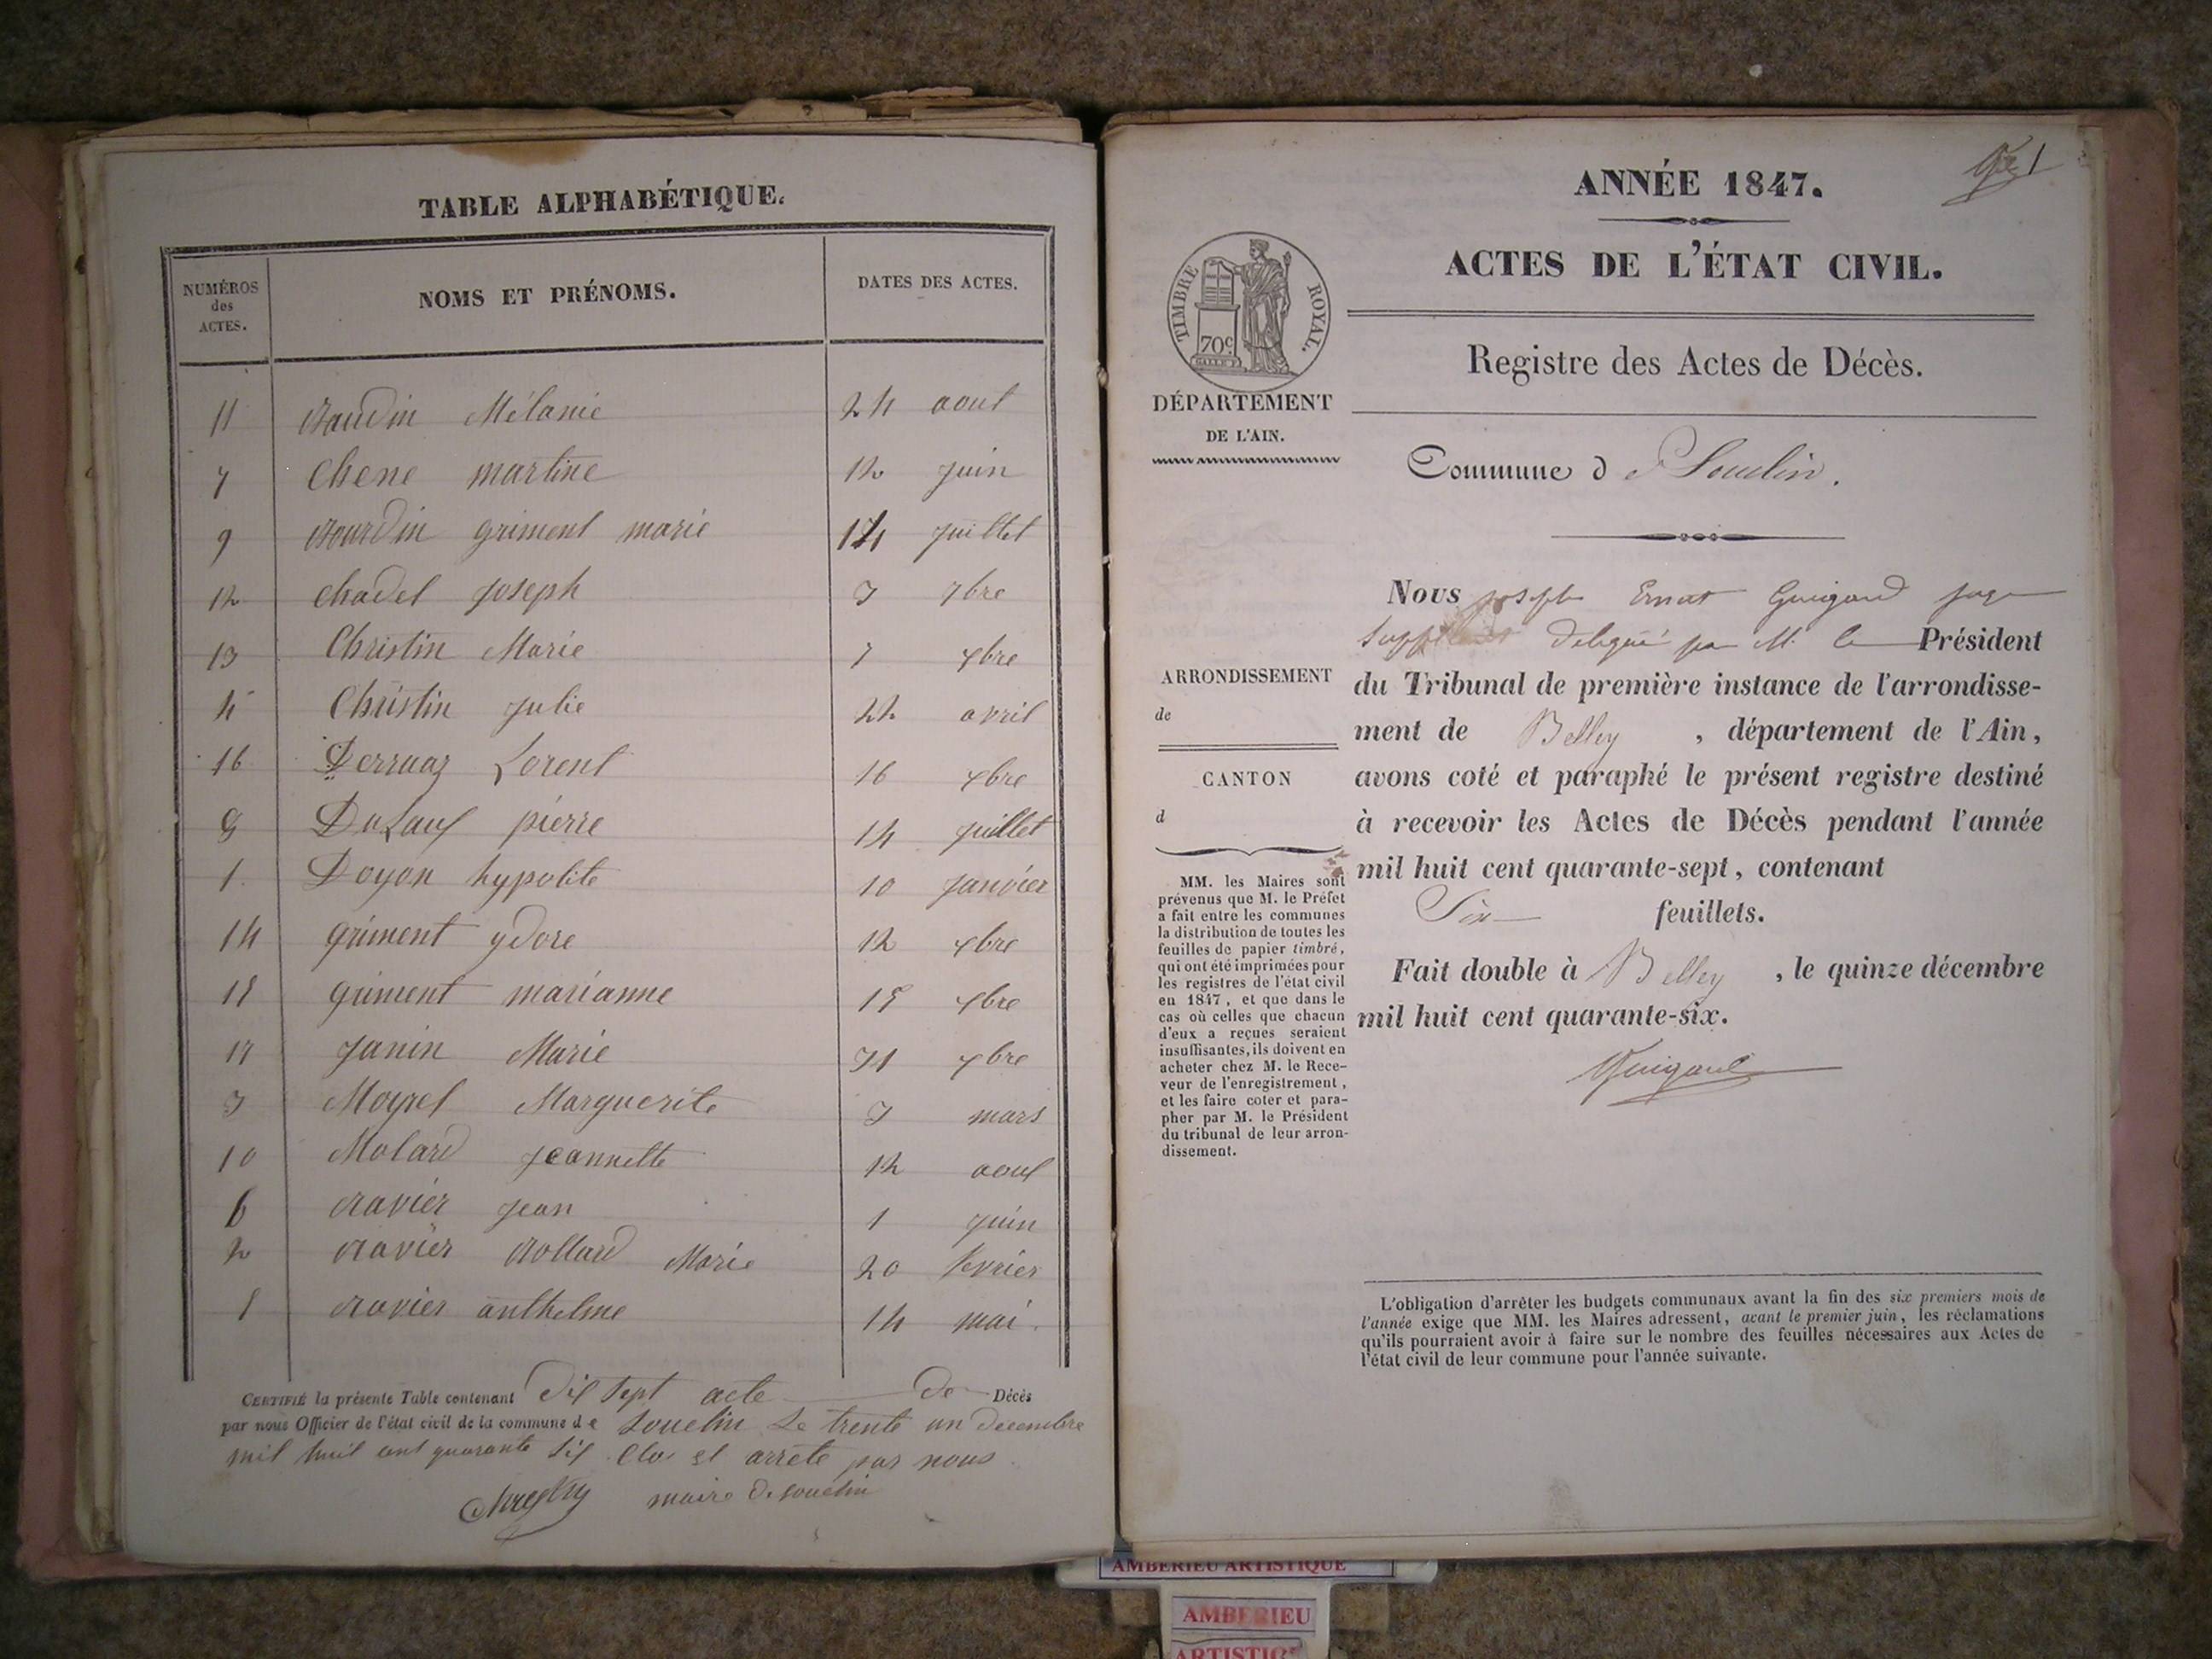 TABLE ALPHABÉTIQUE.
NUMÉROS des ACTES. NOMS ET PRÉNOMS. DATES DES ACTES.
11 Baudin Mélanie 24 aout
7 Chene martine 12 juin
9 Bourdin griment marie 14 juillet
12 Chadel joseph 3 7bre
13 Christin Marie 7 xbre
4 Christin julie 22 avril
16 Derruaz Lorent 16 xbre
8 pierre 14 juillet
1 Doyon hypolite 10 janvier
14 griment ydore 12 xbre
15 griment marianne 15 xbre
17 janin Marie 31 xbre
3 Moyret Marguerite 3 mars
10 Molard jeannette 12 aout
6 Ravier jean 1 juin
2 Ravier Rollard Marie 20 fevrier
5 Ravier anthelme 14 mai.
CERTIFIÉ la présente Table contenant dix sept acte de Décès
par nous Officier de l'état civil de la commune de Souclin Le trente un decembre
mil huit cent quarante six. Clos et arrete par nous
maire de souclin
1
ANNÉE 1847.
ACTES DE L'ÉTAT CIVIL.
TIMBRE ROYAL.
70c
Registre des Actes de Décès.
DÉPARTEMENT
DE L'AIN.
Commune d e Souclin.
Nous joseph Ernest Guigard juge
suppléant délégué par M. le Président
du Tribunal de première instance de l'arrondisse-
ment de Belley, département de l'Ain,
avons coté et paraphé le présent registre destiné
à recevoir les Actes de Décès pendant l'année
mil huit cent quarante-sept, contenant
Six feuillets.
Fait double à Belley, le quinze décembre
mil huit cent quarante-six.
Guigard
ARRONDISSEMENT
de
CANTON
d
MM. les Maires sont
prévenus que M. le Préfet
a fait entre les communes
la distribution de toutes les
feuilles de papier timbré,
qui ont été imprimées pour
les registres de l'état civil
en 1847, et que dans le
cas où celles que chacun
d'eux a reçues seraient
insuffisantes, ils doivent en
acheter chez M. le Rece-
veur de l'enregistrement,
et les faire coter et para-
pher par M. le Président
du tribunal de leur arron-
dissement.
L'obligation d'arrêter les budgets communaux avant la fin des six premiers mois de
l'année exige que MM. les Maires adressent, avant le premier juin, les réclamations
qu'ils pourraient avoir à faire sur le nombre des feuilles nécessaires aux Actes de
l'état civil de leur commune pour l'année suivante.
AMBERIEU ARTISTIQUE
AMBERIEU
ARTISTIQ